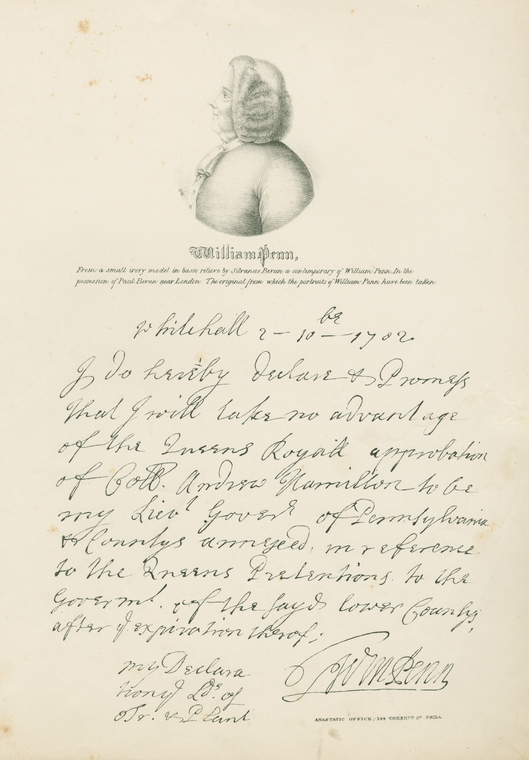 William Penn,
From a small ivory model in basso relievo by Silvanus Bevan a contemporary of William Penn. In the
possession of Paul Bevan near London The original from which the portraits of William Penn have been taken
Whitehall 2 - 10 br - 1702
I do hereby declare & Promess
that I will take no advantage
of the Queens Royall approbation
of Coll. Andrew Hamilton to be
my Lievt Goverr of Pennsylvania
& Countys annexed, in reference
to the Queens Pretentions to the
Govermt. of the sayd lower Countys,
after ye expiration therof;
my Declara
tion yt Lds. of
Tr. & Plant
Wm Penn
ANASTATIC OFFICE, 144 CHESNUT ST PHILA.